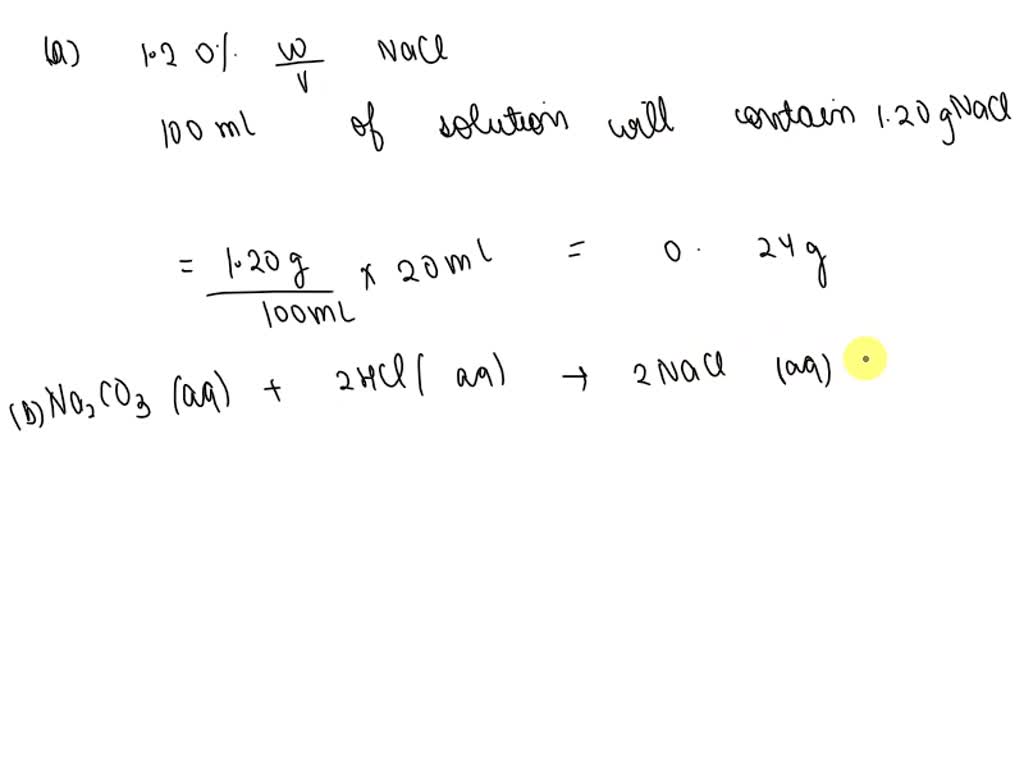 (a) 1.20% w/v NaCl
100 ml of solution will contain 1.20 g NaCl
= 1.20 g / 100 mL x 20 ml = 0.24 g
(b) Na2CO3 (aq) + 2HCl (aq) → 2NaCl (aq)